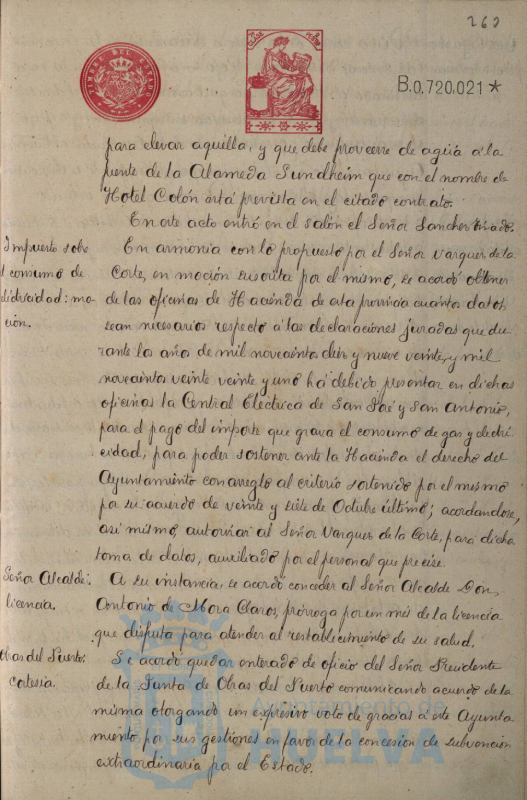 260
TIMBRE DEL ESTADO
B.0,720,021*
para elevar aquella, y que debe proveerse de agua á la
fuente de la Alameda Sundheim que con el nombre de
Hotel Colón está prevista en el citado contrato.
En este acto entró en el salón el Señor Sanchez Tirado.
Impuesto sobre
el consumo de
electricidad: mo-
ción.
En armonia con lo propuesto por el Señor Vazquez de la
Corte, en moción suscrita por el mismo, se acordó obtener
de las oficinas de Hacienda de esta provincia cuantos datos
sean necesarios respecto á las declaraciones juradas que du-
rante los años de mil novecientos diez y nueve veinte, y mil
novecientos veinte veinte y uno há debido presentar en dichas
oficinas la Central Electrica de San José y San Antonio,
para el pago del importe que grava el consumo de gas y electri-
cidad, para poder sostener ante la Hacienda el derecho del
Ayuntamiento con arreglo al criterio sostenido por el mismo
por su acuerdo de veinte y siete de Octubre último; acordandose,
asi mismo, autorizar al Señor Vazquez de la Corte, para dicha
toma de datos, auxiliado por el personal que precise.
Señor Alcalde:
licencia.
A su instancia, se acordó conceder al Señor Alcalde Don
Antonio de Mora Claros, prórroga por un mes de la licencia
que disfruta para atender al restablecimiento de su salud.
Obras del Puerto:
cortesia.
Se acordó quedar enterado de oficio del Señor Presidente
de la Junta de Obras del Puerto comunicando acuerdo de la
misma otorgando un expresivo voto de gracias á este Ayunta-
miento por sus gestiones en favor de la concesión de subvención
extraordinaria por el Estado.
Ayuntamiento de
HUELVA